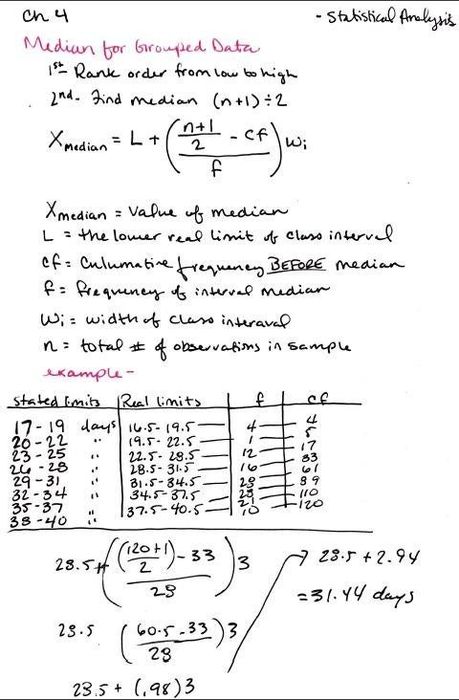 Ch 4 - Statistical Analysis
Median for Grouped Data
1st- Rank order from low to high
2nd- Find median (n+1) ÷ 2
Xmedian = L + ( (n+1)/2 - cf / f ) Wi
Xmedian = value of median
L = the lower real limit of class interval
cf = Culumative frequency BEFORE median
f = frequency of interval median
Wi = width of class interaval
n = total # of observations in sample
example -
Stated limits | Real limits | f | cf
17 - 19 days 16.5 - 19.5 — 4 — 4
20 - 22 " 19.5 - 22.5 — 1 — 5
23 - 25 " 22.5 - 28.5 — 12 — 17
26 - 28 " 28.5 - 31.5 — 16 — 33
29 - 31 " 31.5 - 34.5 — 28 — 61
32 - 34 " 34.5 - 37.5 — 28 — 89
35 - 37 " 37.5 - 40.5 — 21 — 110
38 - 40 " 10 — 120
28.5 + ( ((120+1)/2) - 33 / 28 ) 3
28.5 ( 60.5 - 33 / 28 ) 3
28.5 + (.98) 3
→ 28.5 + 2.94
= 31.44 days